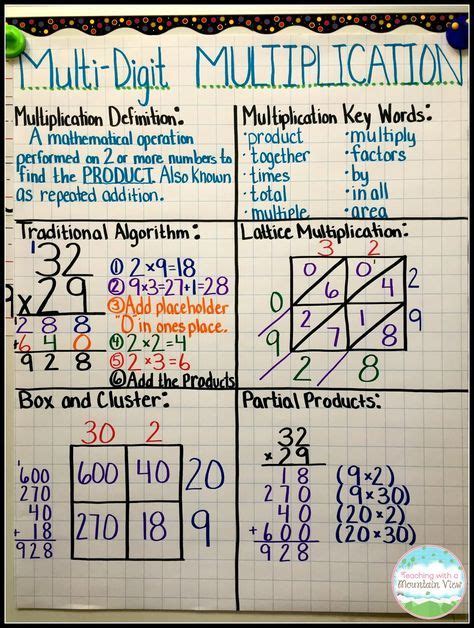 Multi-Digit MULTIPLICATION
Multiplication Definition:
A mathematical operation
performed on 2 or more numbers to
find the PRODUCT. Also Known
as repeated addition.
Multiplication Key Words:
·product ·multiply
·together ·factors
·times ·by
·total ·in all
·multiple ·area
Traditional Algorithm:
1
32
9 x 29
1 2 8 8
+ 6 4 0
9 2 8
① 2×9=18
② 9×3=27+1=28
③ Add placeholder
"0" in ones place.
④ 2×2=4
⑤ 2×3=6
⑥ Add the Products
Lattice Multiplication:
3 2
0 6 0 1 4 2
0
2 7 1 8 9
9
2 8
Box and Cluster:
30 2
600 40 20
270 18 9
1
600
270
40
+ 18
928
Partial Products:
32
x 29
18 (9×2)
270 (9×30)
40 (20×2)
+ 600 (20×30)
928
Teaching with a
Mountain View